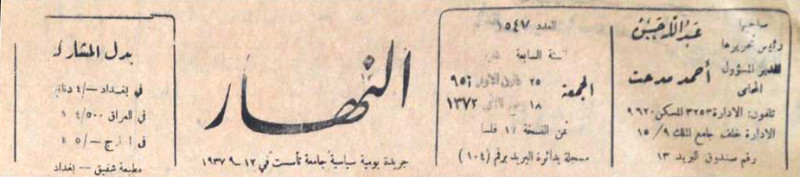 صاحبها
عبدالله حسن
رئيس تحريرها
المدير المسؤول
أحمد مدحت
المحامي
تلفون: الادارة ٣٢٥٣ المسكن ٩٦٢٠
الادارة خلف جامع الملك ٩/ ١٥
رقم صندوق البريد ١٣
العدد ١٥٤٧
السنة السابعة
الجمعة
٢٥ كانون الاول
١٨ ١٣٧٢
ثمن النسخة فلسا
مسجلة بدائرة البريد برقم (١٠٤)
النهار
جريدة يومية سياسية جامعة تأسست في ١٢-٩-١٩٣٧
بدل المشاركة
في بغداد -/٤
في العراق ٥٠٠/٤
في -/٥
مطبعة شفيق - بغداد